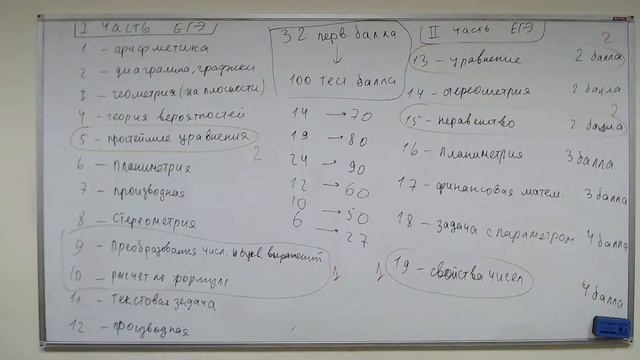 I часть ЕГЭ
1 - арифметика
2 - диаграмма, графики
3 - геометрия (на плоскости)
4 - теория вероятностей
5 - простейшие уравнения
2
6 - планиметрия
7 - производная
8 - Стереометрия
9 - Преобразования числ. и букв. выражений
10 - расчет по формуле
1
11 - Текстовая задача
12 - производная
32 перв балла
↓
100 тест. балла
14 → 70
19 → 80
24 → 90
12 → 60
10 → 50
6 → 27
II часть ЕГЭ
2
13 - уравнение 2 балла
14 - стереометрия 2 балла
2
15 - неравенство 2 балла
16 - планиметрия 3 балла
17 - финансовая матем. 3 балла
18 - задача с параметром 4 балла
1
19 - свойства чисел 4 балла